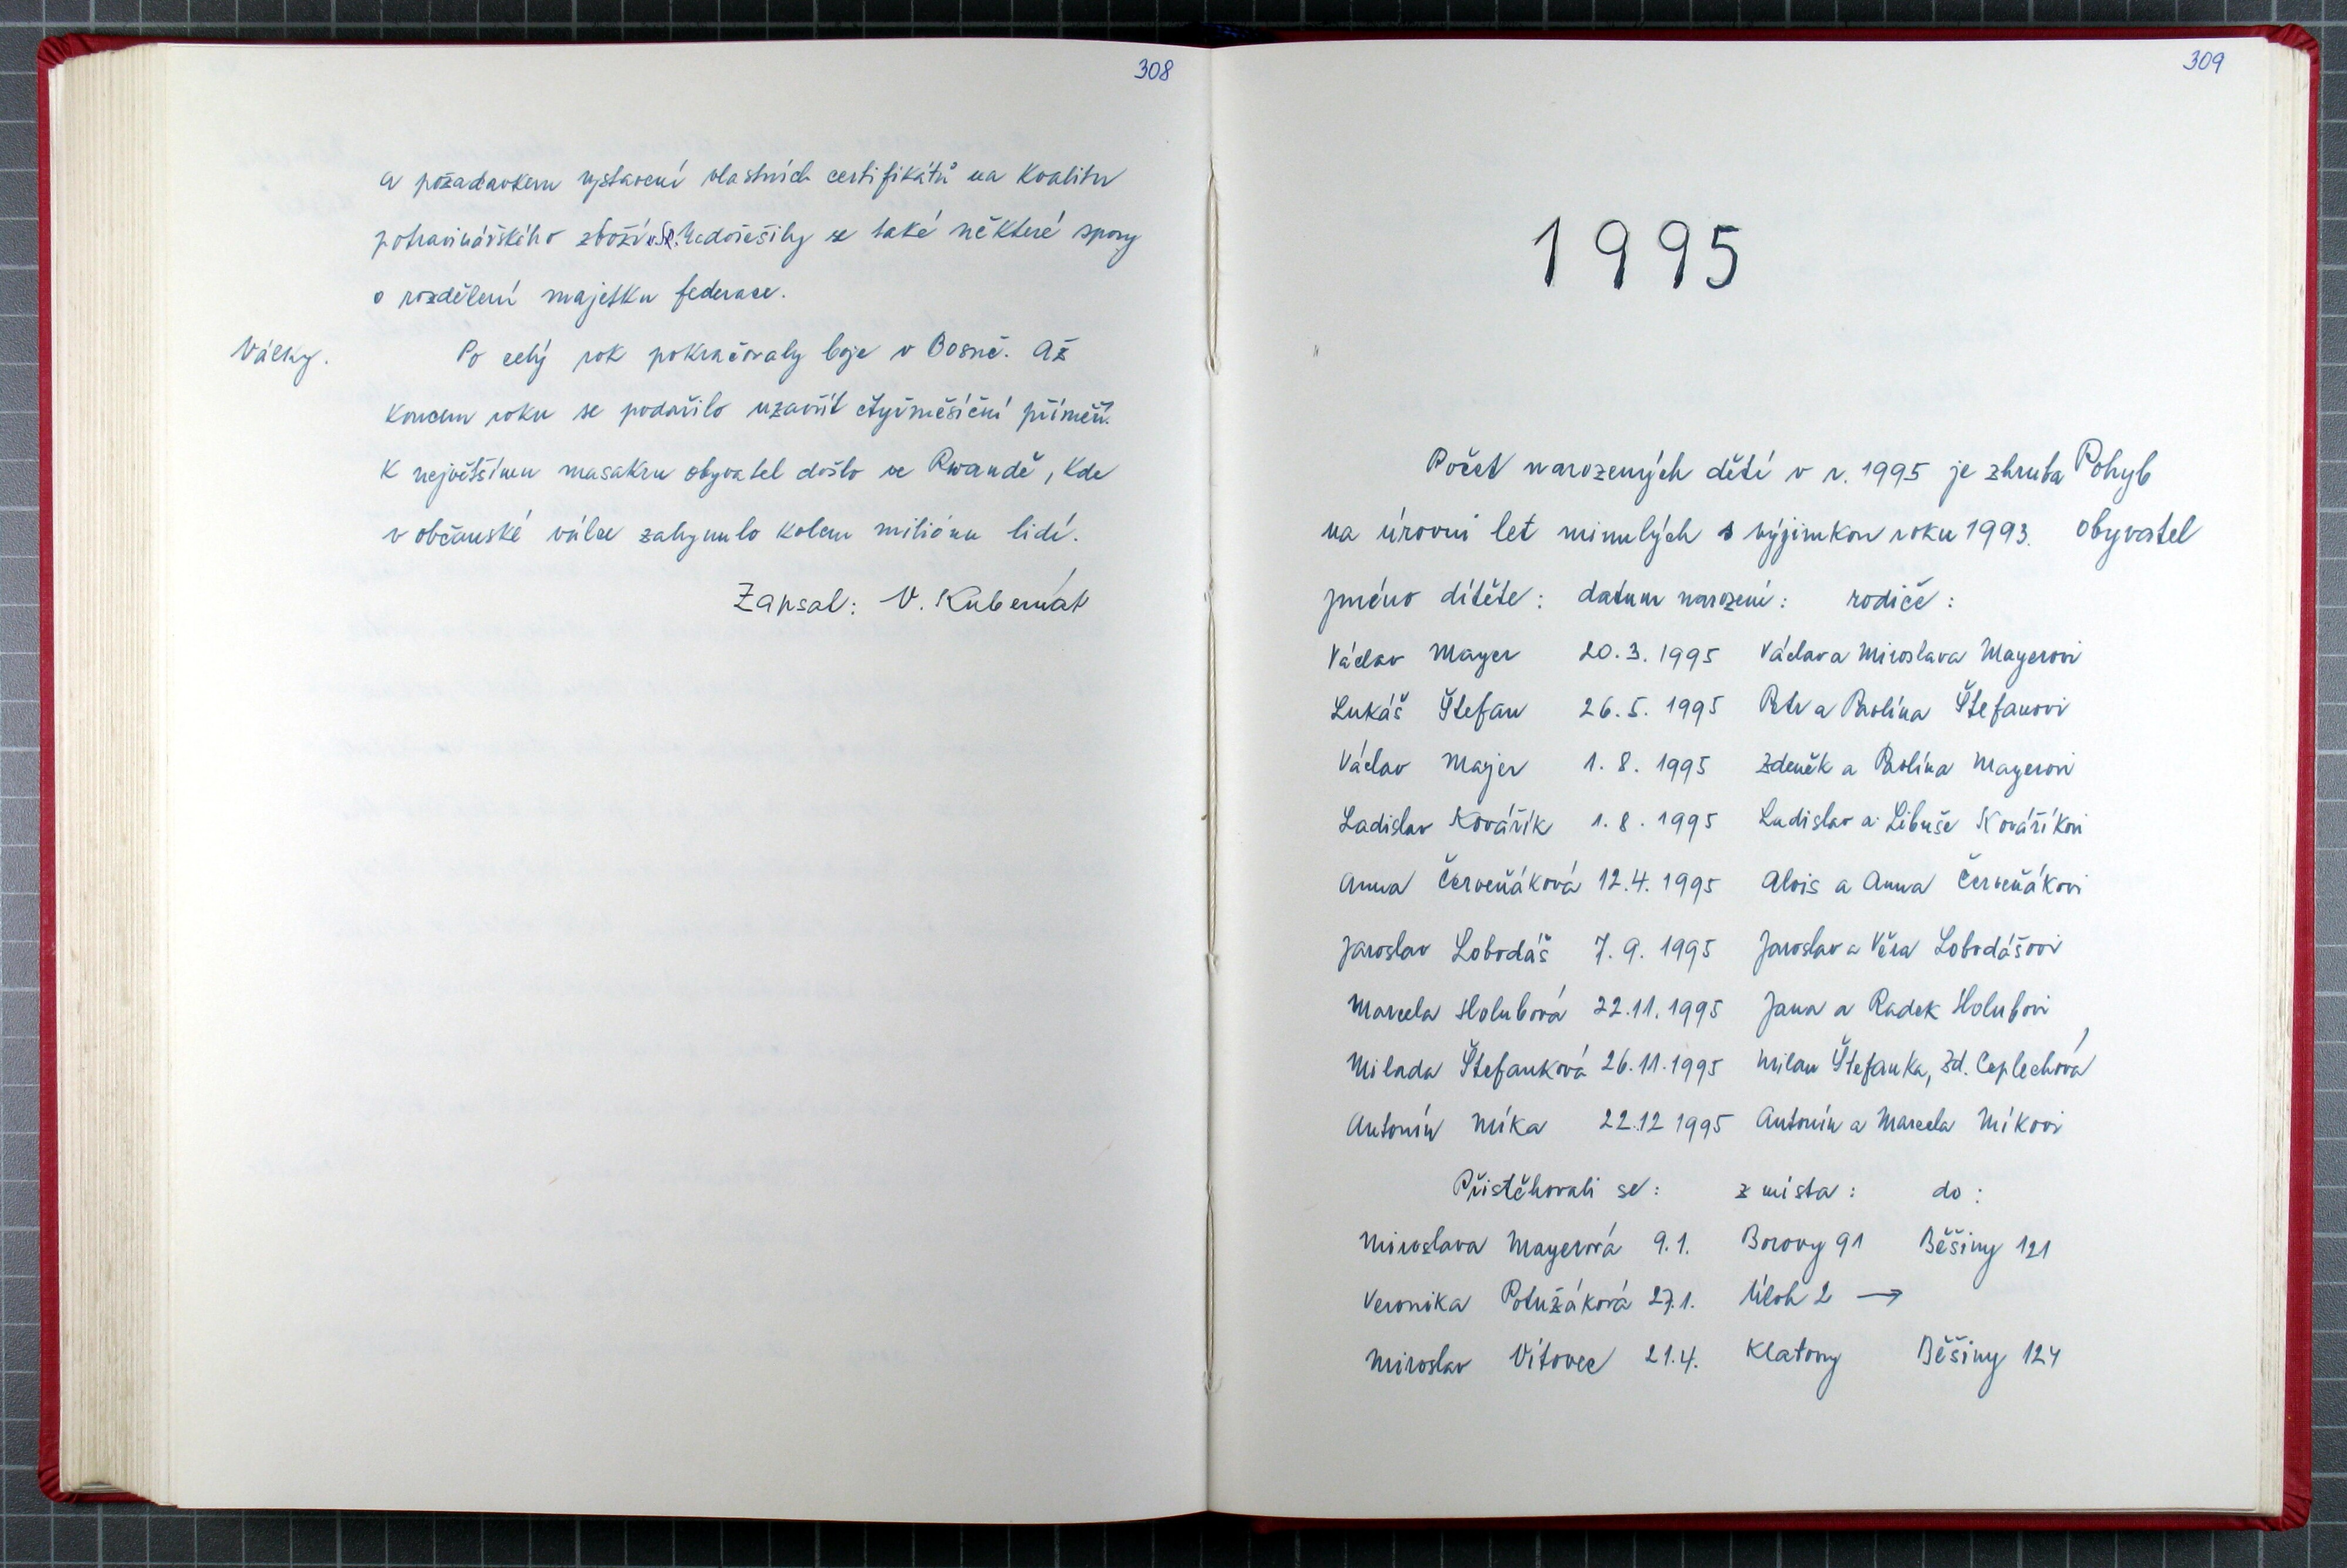 308
a požadavkem vystavení vlastních certifikátů na kvalitu
potravinářského zboží v SR. Nedořešily se také některé spory
o rozdělení majetku federace.
Války. Po celý rok pokračovaly boje v Bosně. Až
koncem roku se podařilo uzavřít čtyřměsíční příměří.
K největšímu masakru obyvatel došlo ve Rwandě, kde
v občanské válce zahynulo kolem miliónu lidí.
Zapsal: V. Kubernát
309
1995
Počet narozených dětí v r. 1995 je zhruba Pohyb
na úrovni let minulých s výjimkou roku 1993. obyvatel
jméno dítěte: datum narození: rodiče:
Václav Mayer 20.3.1995 Václav a Miroslava Mayerovi
Lukáš Štefan 26.5.1995 Petr a Pavlína Štefanovi
Václav Majer 1.8.1995 Zdeněk a Pavlína Mayerovi
Ladislav Kovářík 1.8.1995 Ladislav a Libuše Kováříkovi
Anna Červeňáková 12.4.1995 Alois a Anna Červeňákovi
Jaroslav Lobodáš 7.9.1995 Jaroslav a Věra Lobodášovi
Marcela Holubová 22.11.1995 Jana a Radek Holubovi
Milada Štefanková 26.11.1995 Milan Štefanka, Zd. Ceplechová
Antonín Míka 22.12 1995 Antonín a Marcela Míkovi
Přistěhovali se: z místa: do:
Miroslava Mayerová 9.1. Borovy 91 Běšiny 121
Veronika Potužáková 27.1. Úloh 2 →
Miroslav Vítovec 21.4. Klatovy Běšiny 124